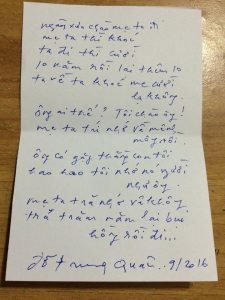 ngày xưa chào mẹ ta đi
mẹ ta thì khóc
ta đi thì cười
10 năm rồi lại thêm 10
ta về ta khóc mẹ cười
lạ không
ông ai thế? Tôi chào ông!
mẹ ta trí nhớ về mênh
mông rồi
ông có gặp thằng con tôi
bao hao tôi nhớ nó người
như ông
mẹ ta trả nhớ về không
trả trăm năm lại bụi
hồng rồi đi...
Đỗ Trung Quân.. 9/2016